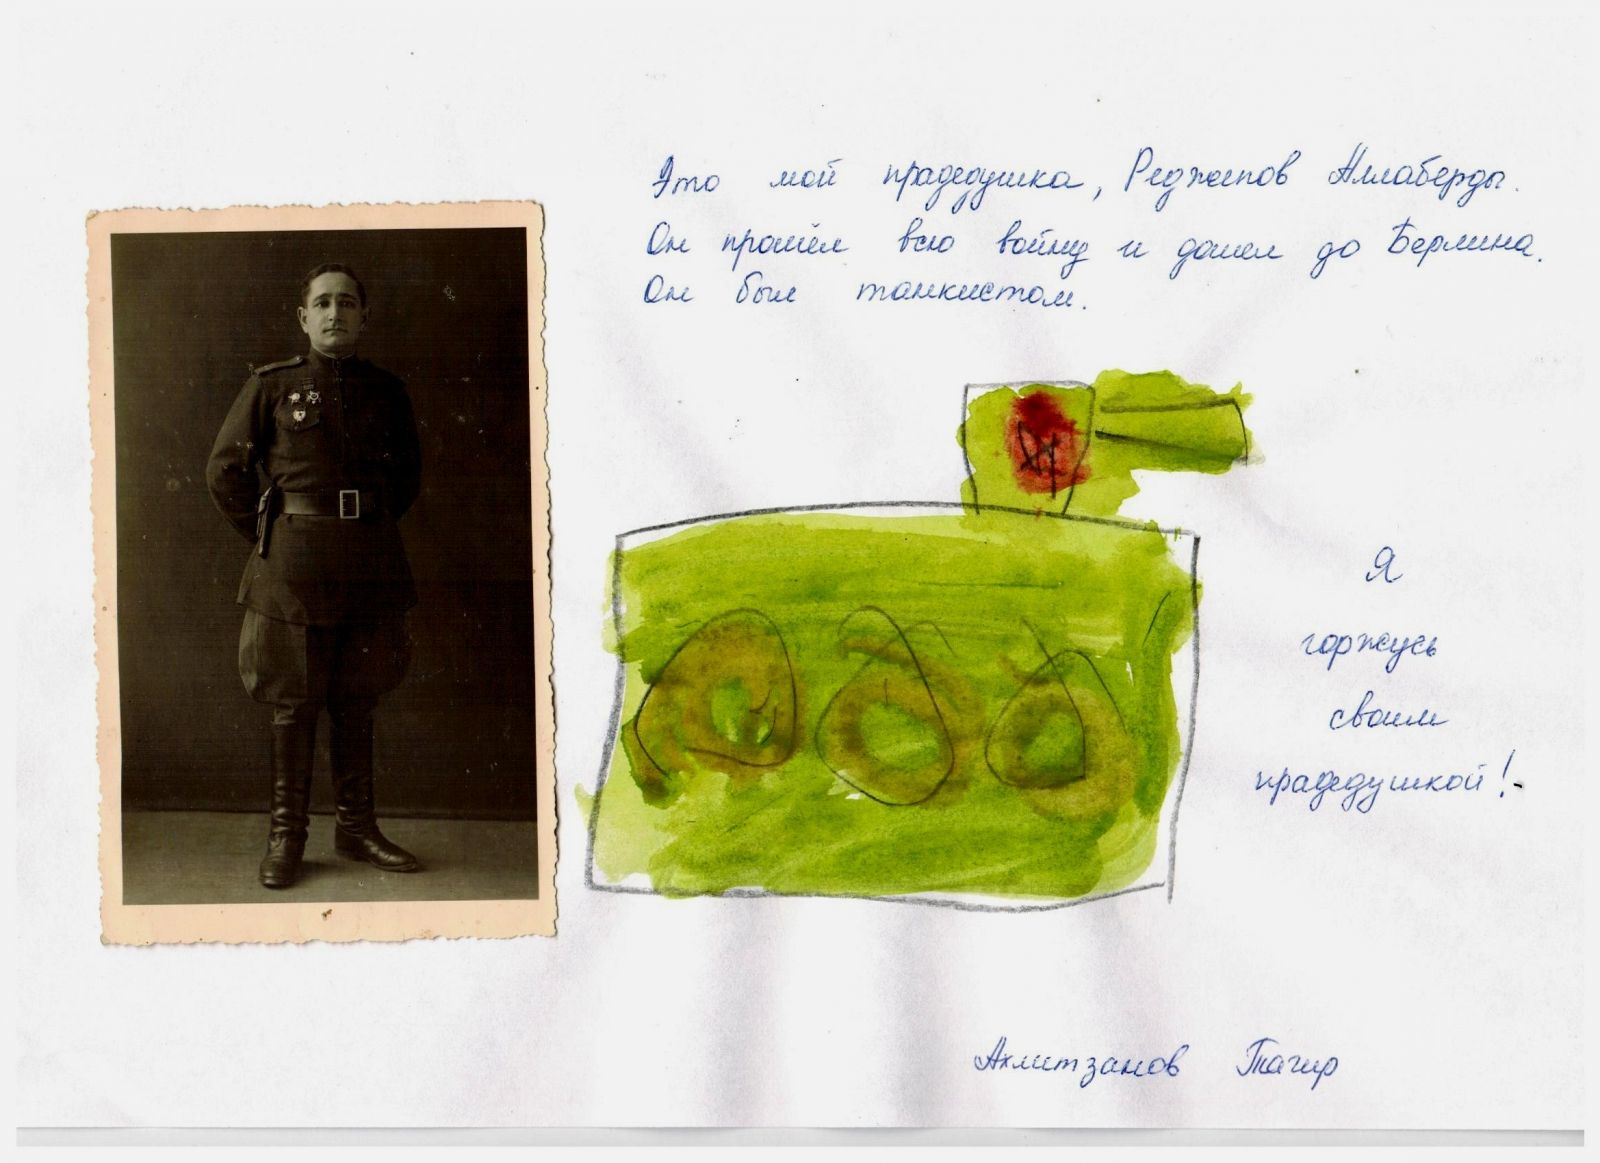 Это мой прадедушка, Реджепов Аллаберды.
Он прошёл всю войну и дошел до Берлина.
Он был танкистом.
Я
горжусь
своим
прадедушкой!
Ахмитзанов Тагир